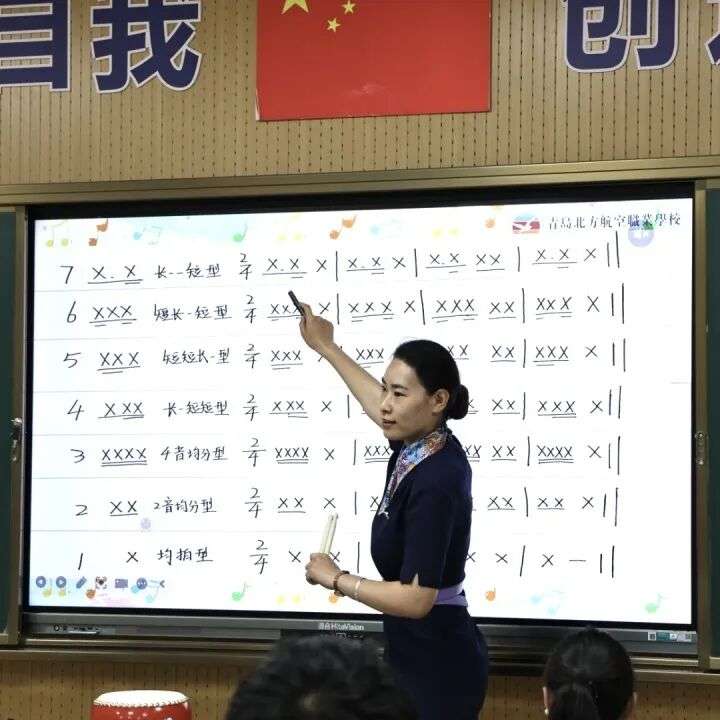 自我 创
青岛北方航空職業學校
7 X.X 长--短型 2/4 X.X X | X.X X | X.X XX | X.X X ||
6 XXX 短长-短型 2/4 XXX X | XXX X | XXX XX | XXX X ||
5 XXX 短短长-型 2/4 XXX X | XXX XX | XXX X ||
4 X XX 长-短短型 2/4 XXX X | XX | XXX X ||
3 XXXX 4音均分型 2/4 XXXX X | XXXX XX | XXXX X ||
2 XX 2音均分型 2/4 XX X | XX | XX X ||
1 X 均拍型 2/4 X X | X | X - ||
HiteVision